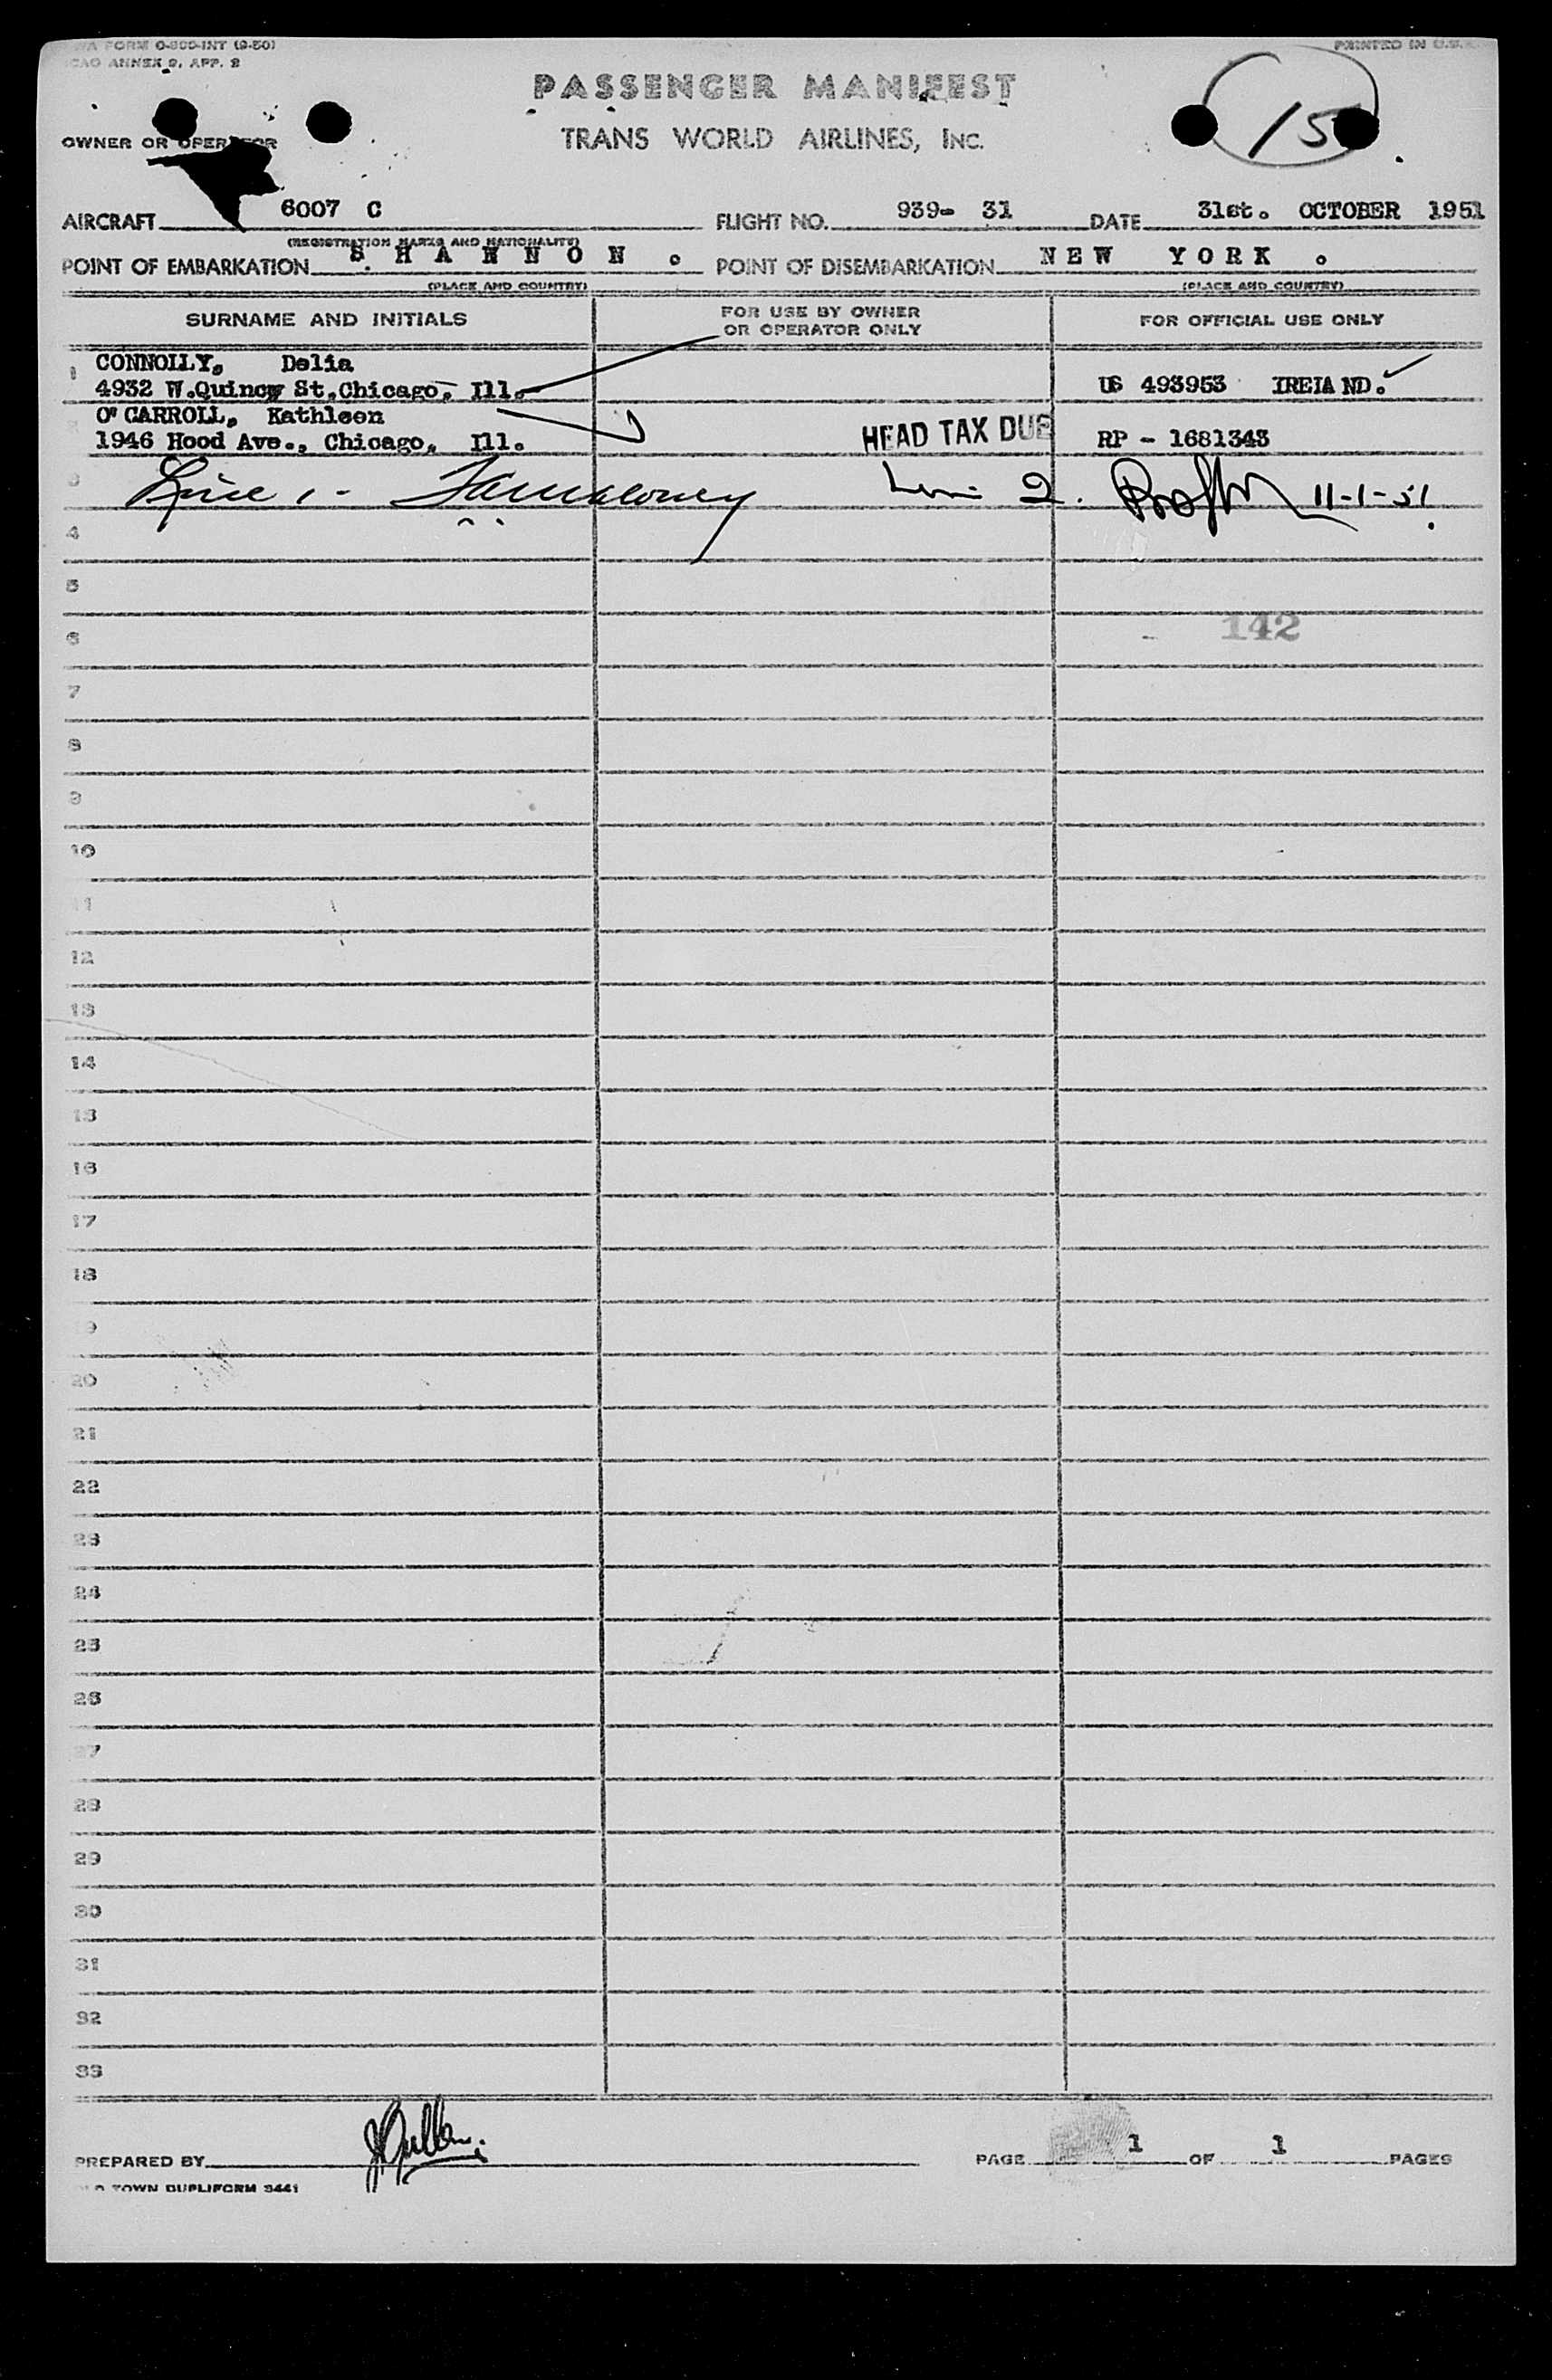 TWA FORM O-800-INT (9-50)
ICAO ANNEX 9, APP. 2
PRINTED IN U.S.A.
PASSENGER MANIFEST
15
TRANS WORLD AIRLINES, INC.
OWNER OR OPERATOR
AIRCRAFT 6007 C FLIGHT NO. 939- 31 DATE 31st. OCTOBER 1951
(REGISTRATION MARKS AND NATIONALITY)
POINT OF EMBARKATION S H A N N O N . POINT OF DISEMBARKATION N E W Y O R K .
(PLACE AND COUNTRY) (PLACE AND COUNTRY)
SURNAME AND INITIALS FOR USE BY OWNER OR OPERATOR ONLY FOR OFFICIAL USE ONLY
1 CONNOLLY, Delia
4932 W.Quincy St.Chicago, Ill. US 493953 IRELAND.
2 O'CARROLL, Kathleen
1946 Hood Ave., Chicago, Ill. HEAD TAX DUE RP - 1681343
3 Line 1 - Line 2. 11-1-51
4
5
6 142
7
8
9
10
11
12
13
14
15
16
17
18
19
20
21
22
23
24
25
26
27
28
29
30
31
32
33
PREPARED BY PAGE 1 OF 1 PAGES
OLD TOWN DUPLIFORM 3441